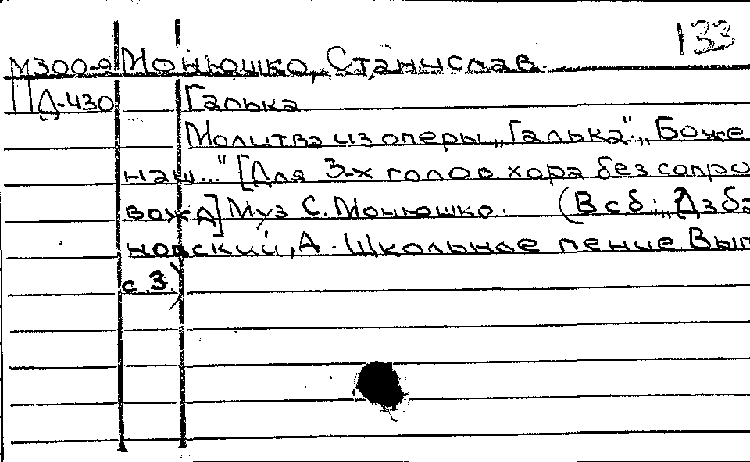 133
М300-9 Монюшко, Станислав.
ПД-430 Галька
Молитва из оперы „Галька“, „Боже
наш..." [Для 3-х голос хора без сопро
вожд] Муз С. Монюшко. (В сб: „Дзба
новский, А. Школьное пение Вып
с.3)